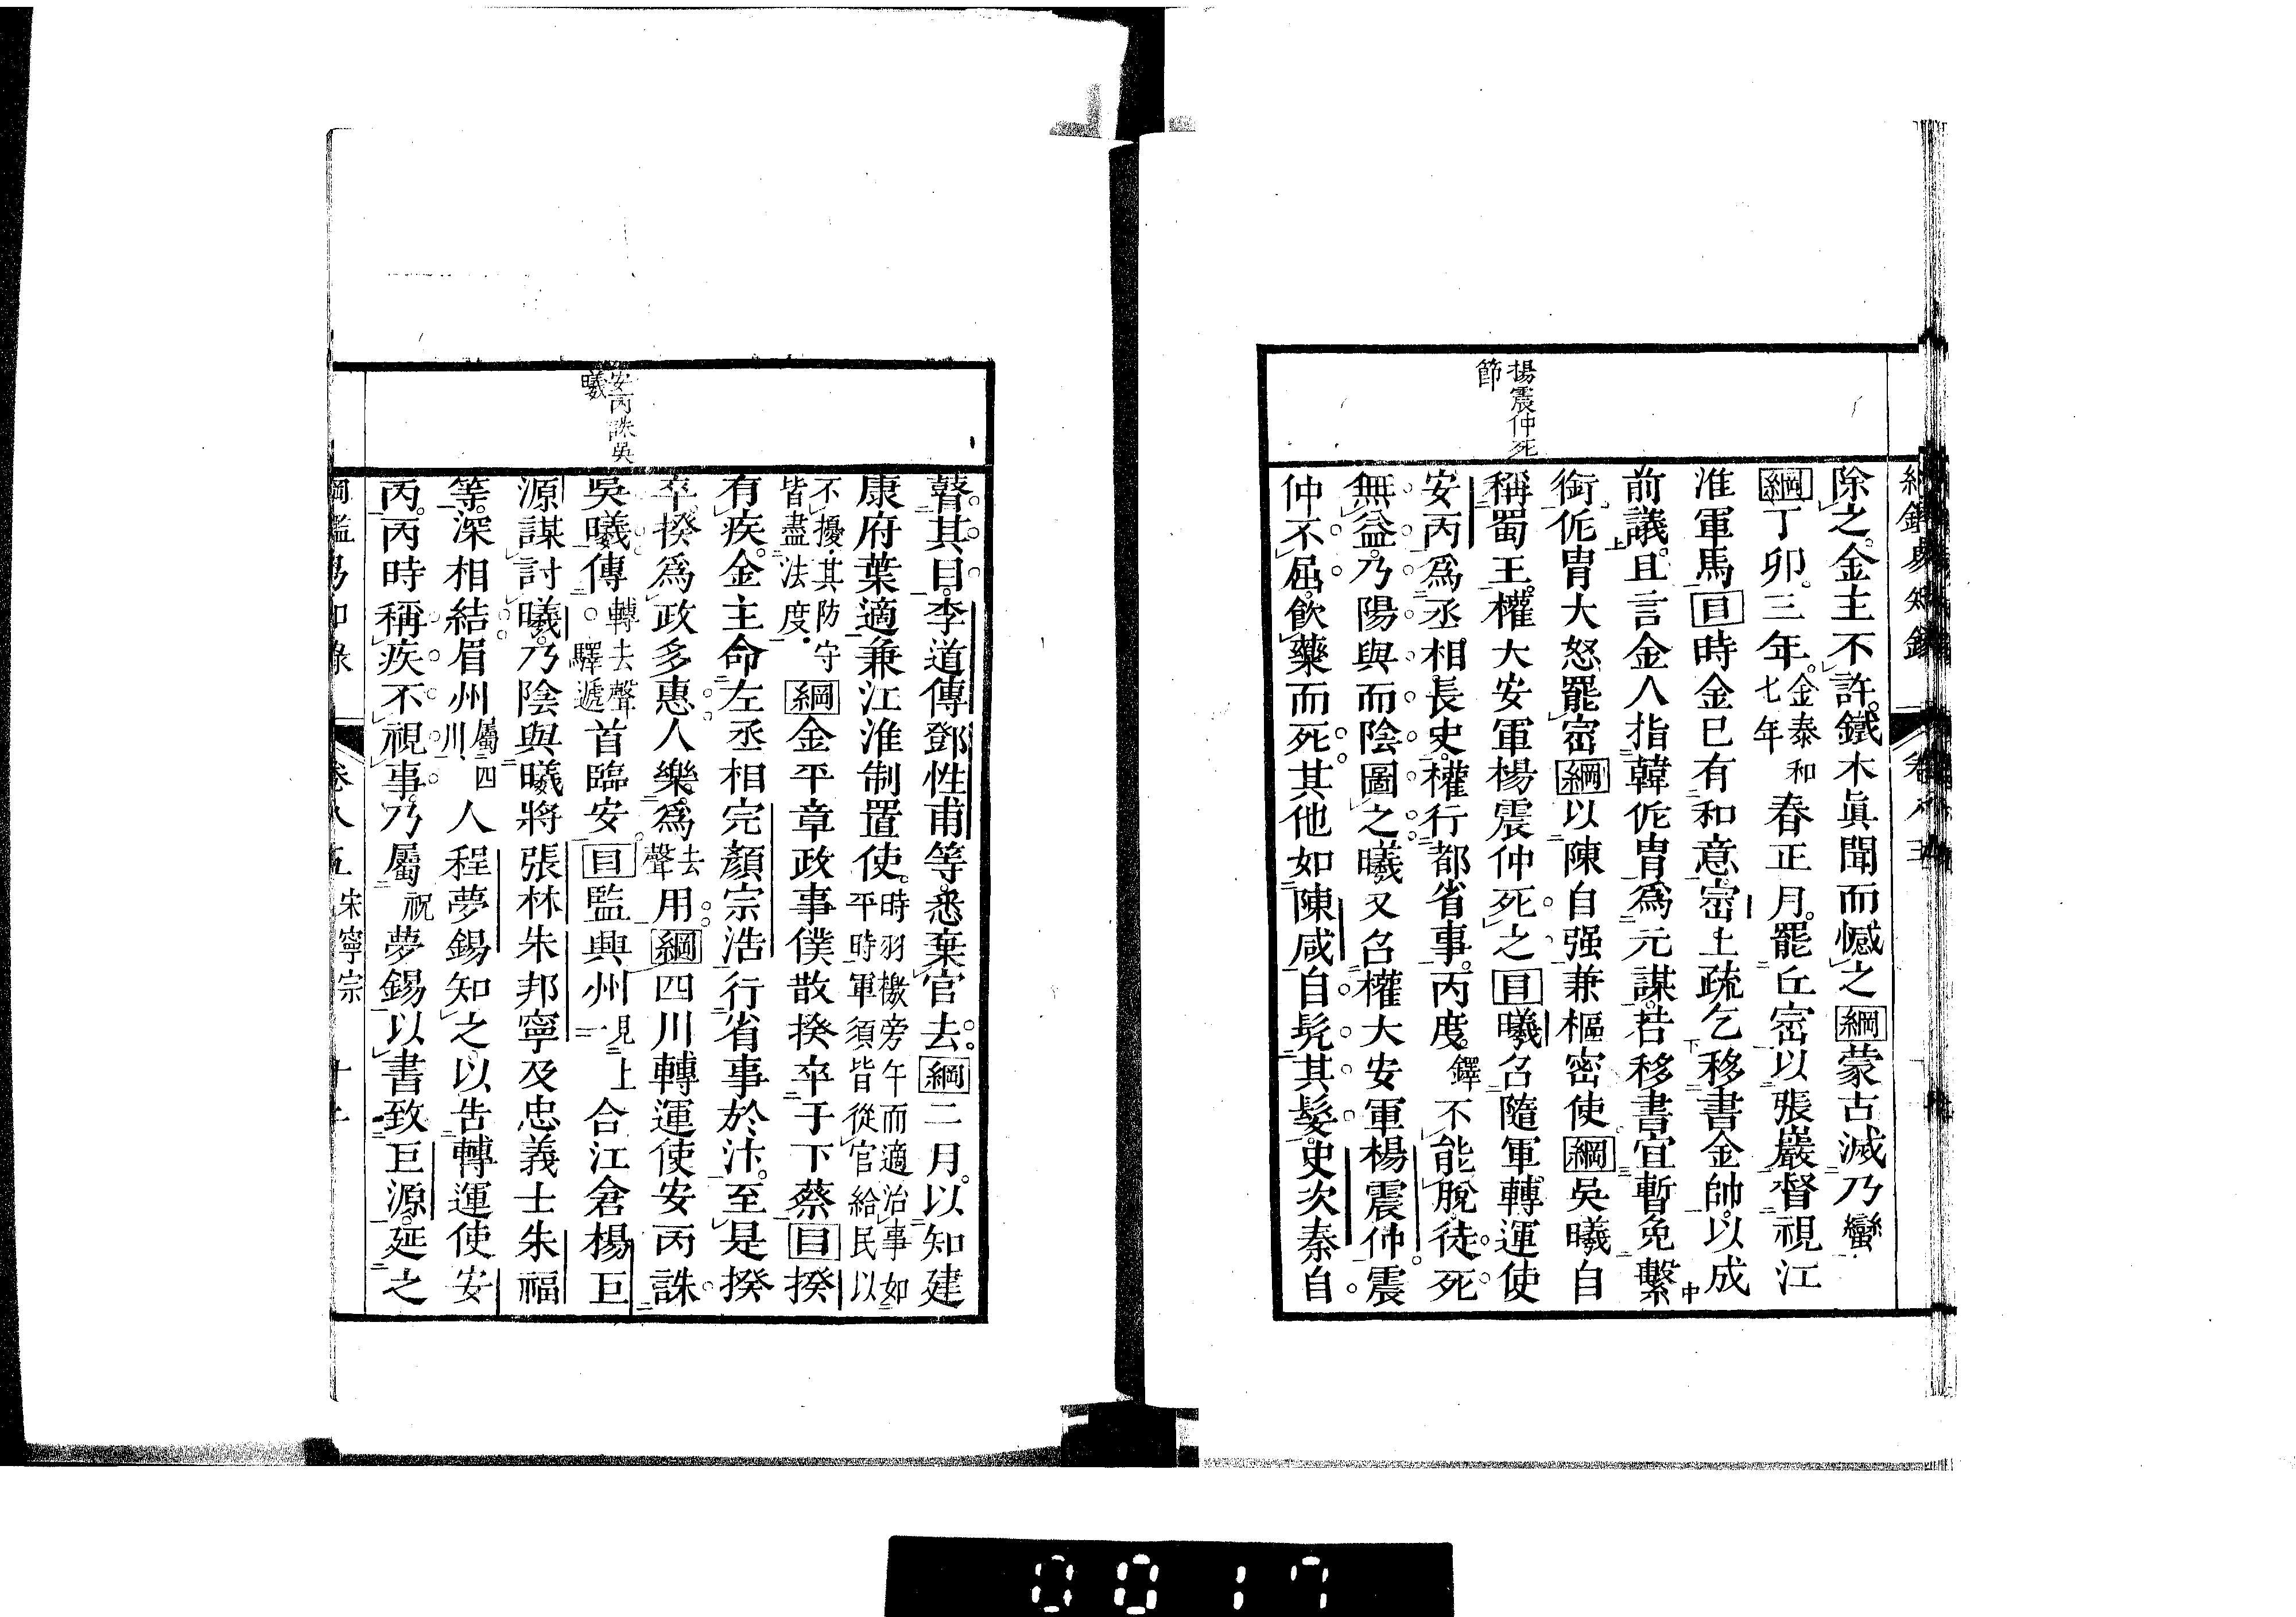 楊震仲死
節
除之。金主不許。鐵木眞聞而憾之綱蒙古滅乃蠻
綱丁卯。三年。金泰和七年春正月。罷丘崈以張巖督視江
淮軍馬目時金已有和意。崈上疏乞移書金帥。以成
前議。且言金人指韓侂胄爲元謀。若移書宜暫免繫
銜侂胄大怒罷崈綱以陳自强兼樞密使綱吳曦自
稱蜀王。權大安軍楊震仲死之目曦召隨軍轉運使
安丙爲丞相長史。權行都省事。丙度鐸不能脫。徒死
無益。乃陽與而陰圖之。曦又召權大安軍楊震仲。震
仲不屈。飮藥而死。其他如陳咸自髡其髮。史次秦自
安丙誅吳
曦
瞽其目。李道傳鄧性甫等。悉棄官去。綱二月。以知建
康府葉適兼江淮制置使。時羽檄旁午而適治事如平時軍須皆從官給民以
不擾其防守皆盡法度。綱金平章政事僕散揆卒于下蔡目揆
有疾。金主命左丞相完顏宗浩行省事於汴。至是揆
卒。揆爲政多惠人樂爲去聲用。綱四川轉運使安丙誅
吳曦傳轉去聲驛遞首臨安目監興州見上一合江倉楊巨
源謀討曦。乃陰與曦將張林朱邦寧及忠義士朱福
等。深相結眉州屬四川人程夢錫知之。以告轉運使安
丙。丙時稱疾不視事。乃屬祝夢錫以書致巨源。延之
卷八五 宋寧宗